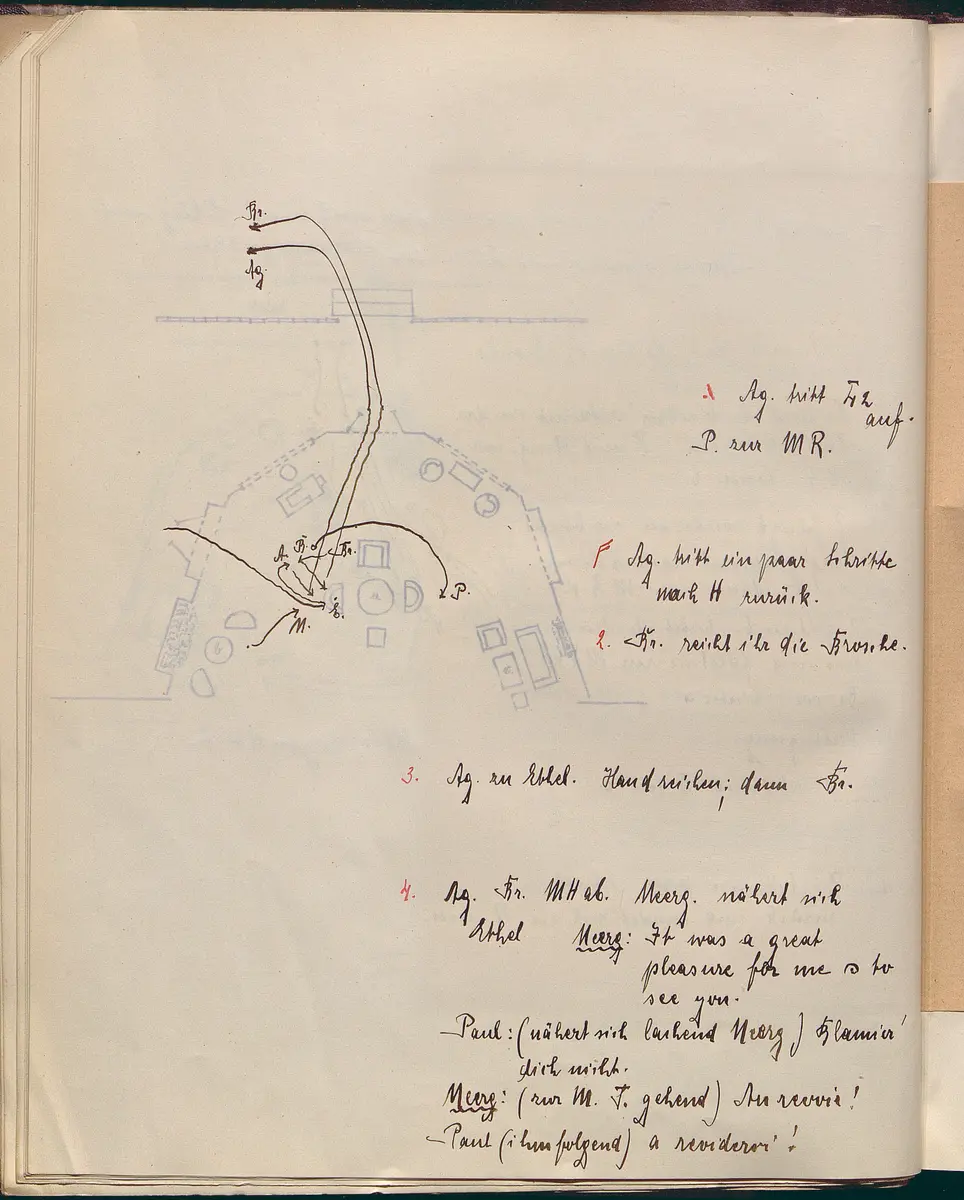 Br.
Ag.
Ag. tritt L2
auf.
P. zur MR.
A. B. Br.
P.
E.
M.
F Ag. tritt ein paar Schritte
nach H zurück.
2. Br. reicht ihr die Brosche.
3. Ag. zu Ethel. Hand reichen; dann Br.
4. Ag. Br. MH ab. Meerg. nähert sich
Ethel Meerg: It was a great
pleasure for me to
see you.
Paul: (nähert sich lachend Meerg) Blamier'
dich nicht.
Meerg: (zur M. T. gehend) Au revoir!
Paul (ihm folgend) a reviderci!